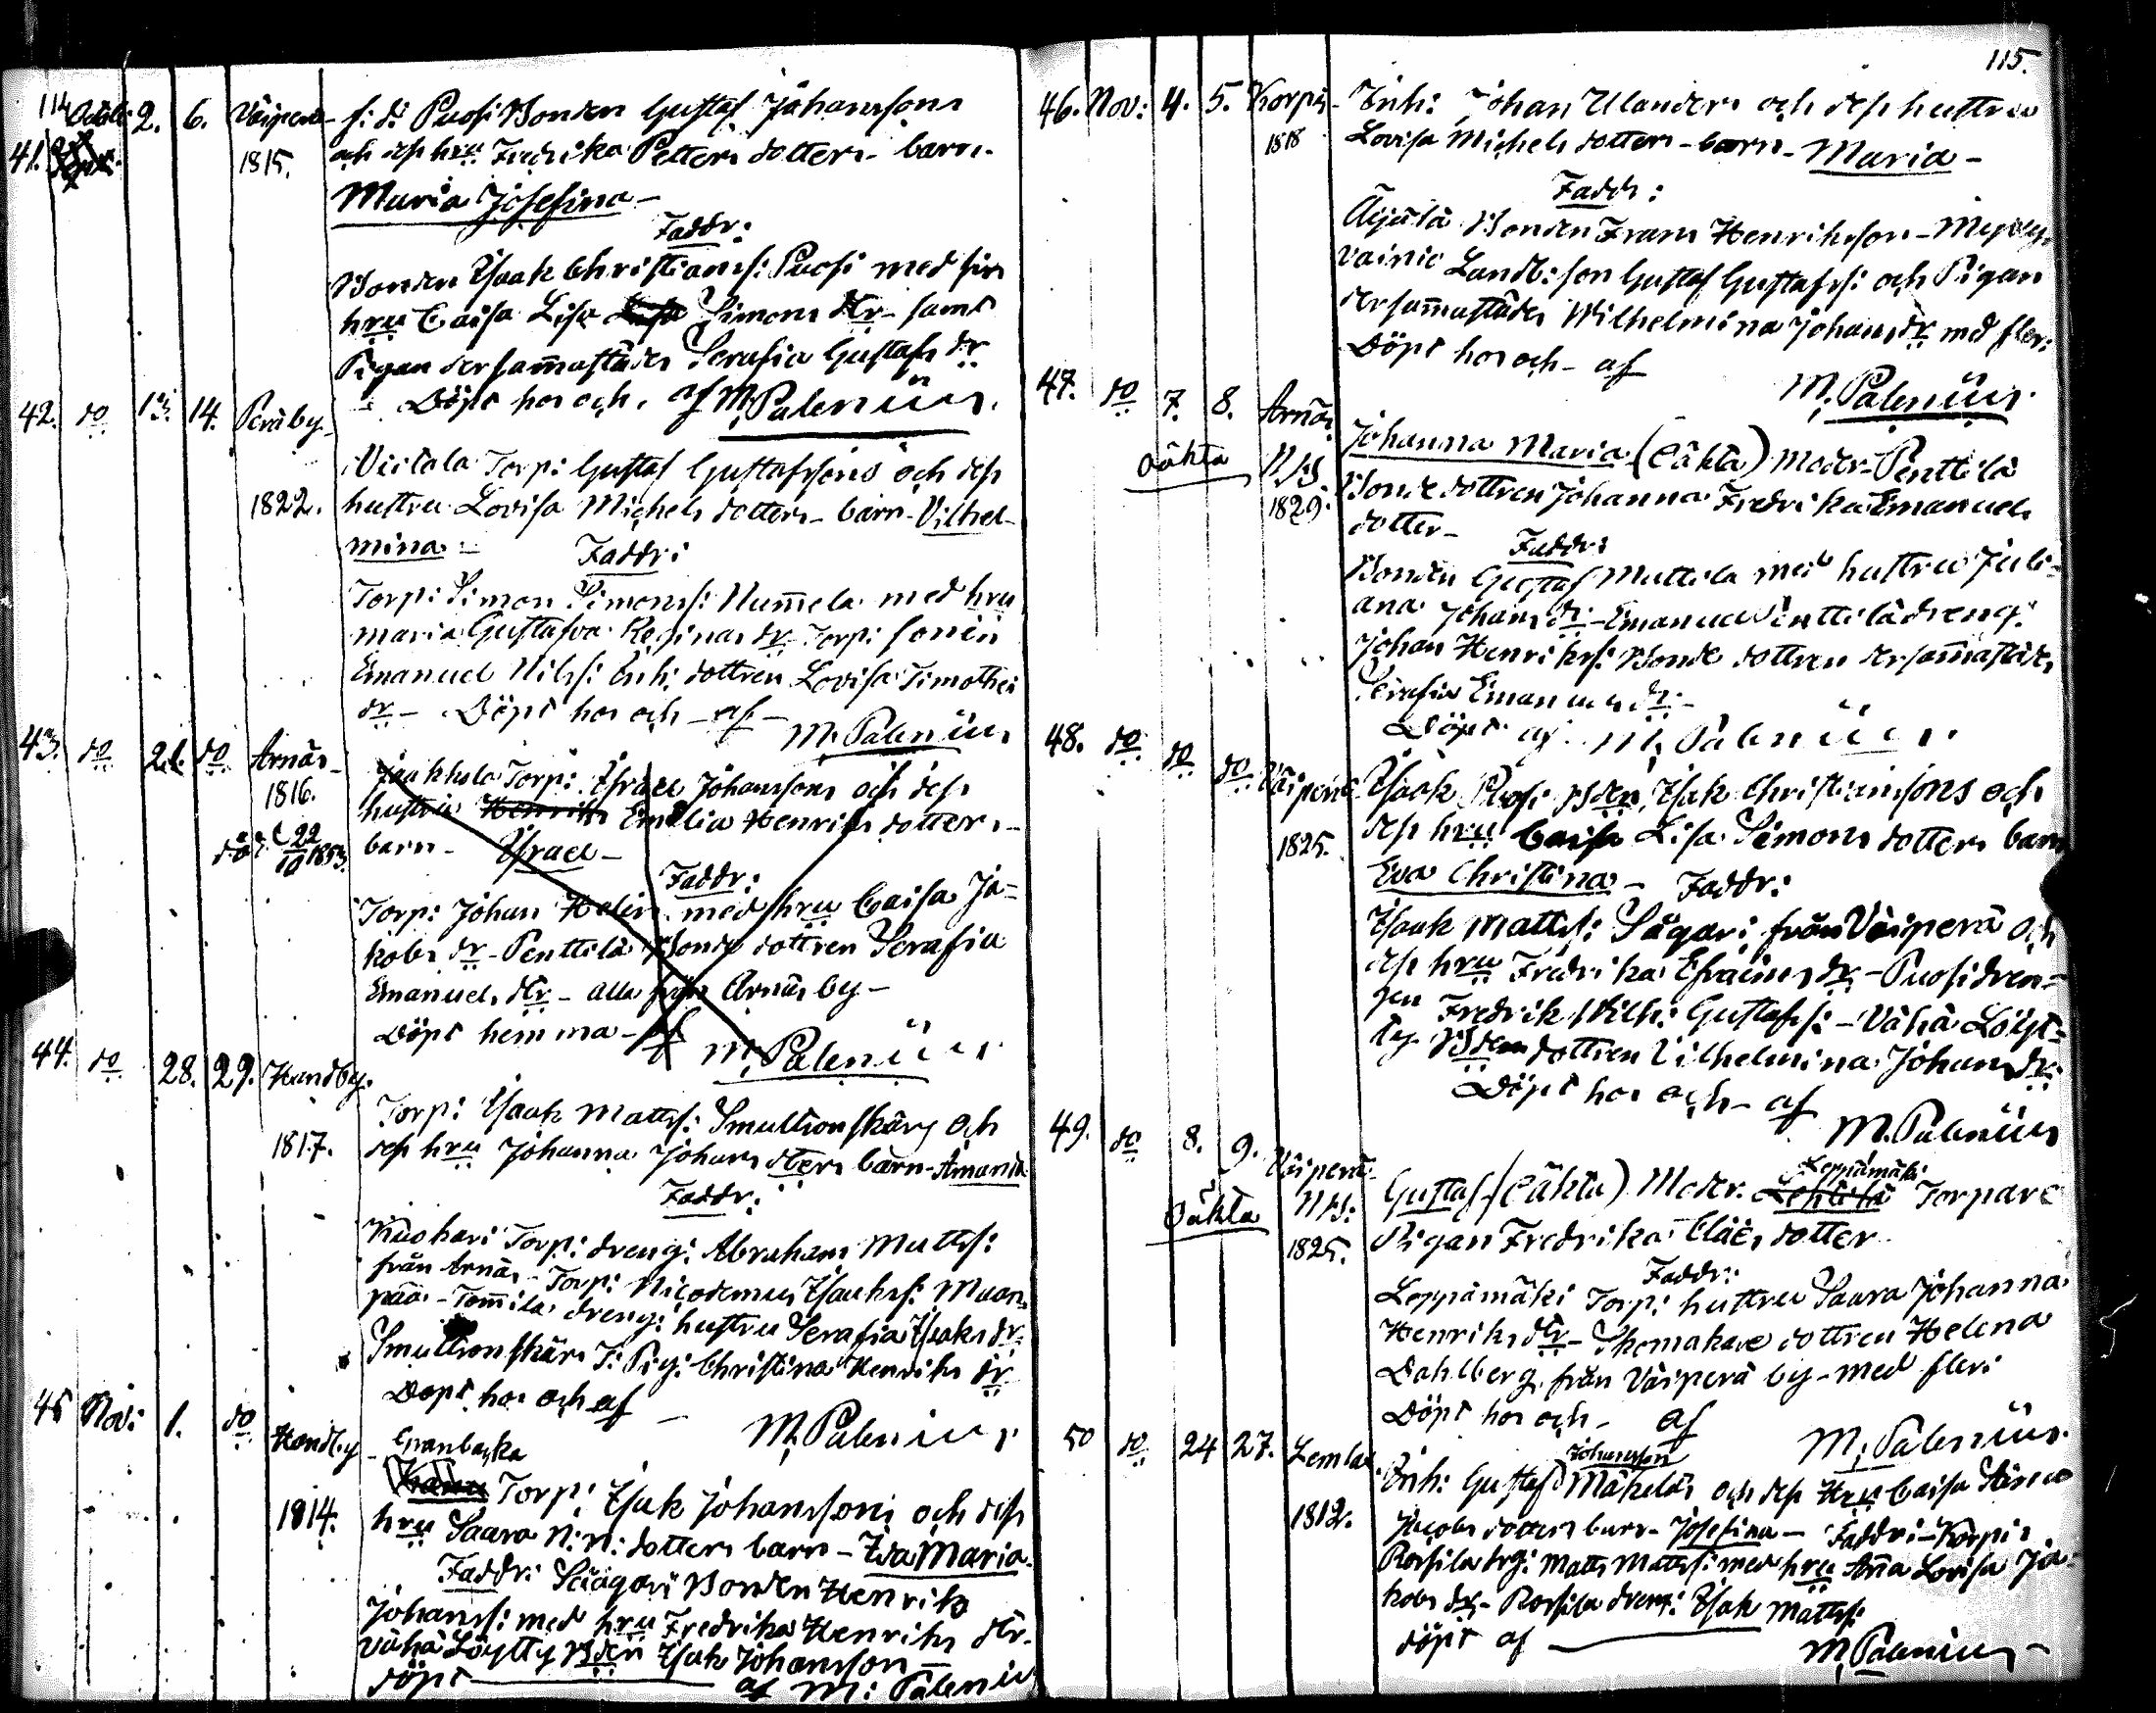 114
41. Octobr: 2. 6. Väiperä
1815.
f: d: Puosi Bonden Gustaf Johanssons
och dess hru Fredrika Petters dotters barn
Maria Josefina
Faddr:
Bonden Isaak Christians: Puosi med sin
hru Caisa Lisa Simons dtr samt
Pigan dersammastädes Serafia Gustafs dr
Döpt hos och af M. Palenius.
42. do 13. 14. Peräby
1822.
Torp: Gustaf Gustafssons och dess
hustru Lovisa Michels dotters barn Vilhel-
mina
Faddr:
Torp: Simon Simonss: Num̄ela med hru
Maria Gustafva Reginas dr Torp: sonen
Emanuel Nilss: Inh: dottren Lovisa Timothei
dr Döpt hos och af
M. Palenius
43. do 21. do Arnäs
1816.
död 22/10 1853.
Jaakkola Torp: Israel Johanssons och dess
hustru Henriks Emelia Henriks dotters
barn Israel
Faddr:
Torp: Johan Helin med hru Caisa Ja-
kobs dr Penttilä Bonde dottren Serafia
Emanuels dtr alla från Arnäs by
Döpt hemma af
M. Palenius
44. do 28. 29. Humdby
1817.
Torp: Isaak Matts: Smultronskärs och
dess hru Johanna Johans dters barn Amanda
Faddr:
Torp: dreng: Abraham Mattss:
från Arnäs Torp: Nicodemus Isaakss:
Tom̄ila dreng: hustru Serafia Isaks dr
Smultronskärs T: Pig: Christina Henriks dr
Döpt hos och af
M. Palenius
45 Nov: 1. do Humdby
1814.
Granbacka
Torp: Isak Johanssons och dess
hru Saara N: N: dotters barn Ida Maria.
Faddr: Säägari Bonden Henrik
Johanss: med hru Fredrika Henriks dtr
Vähä Löytty Bden Isak Johansson
döpt af M: Palenius
115.
46. Nov: 4. 5. Korpis
1818
Inh: Johan Ulanders och dess hustru
Lovisa Michels dotters barn Maria
Faddr:
Äijälä Bonden Frans Henriksson
vainio Landb: son Gustaf Gustafss: och Pigan
dersam̄astädes Wilhelmina Johans dr med fler:
Döpt hos och af
M. Palenius.
47. do 7. 8. Arnäs
oäkta
1829.
Johanna Maria (oäkta) Moder Penttilä
Bonde dottren Johanna Fredrika Emanuels
dotter
Faddr:
Bonden Gustaf Mattila med hustru Juli-
ana Johans dr Emanuel Penttilä dreng:
Johan Henrikss: Bonde dottren dersam̄astädes
Serafia Emanuels dr
Döpt af M. Palenius.
48. do do do Väiperä
1825.
Isaak Puosi Bden Isak Christianssons och
dess hru Caisa Lisa Simons dotters barn
Eva Christina Faddr:
Isaak Mattss: Sägari från Väiperä och
dess hru Fredrika Efraims dr Puosi dren-
gen Fredrik Wilh: Gustafss: Vähä Löyt-
ty Bden dottren Vilhelmina Johans dr:
Döpt hos och af
M. Palenius
49. do 8. 9. Väiperä
oäkta
1825.
Gustaf (oäkta) Moder Leppämäki Torpare
Pigan Fredrika Claës dotter
Faddr:
Leppämäki Torp: hustru Saara Johanna
Henriks dtr Skomakare dottren Helena
Dahlberg från Väiperä by med fler:
Döpt hos och af
M: Palenius.
50 do 24 27. Lemlax
1812.
Inh: Gustaf Johansson Mäkeläs och dess Hru Caisa Stina
Jacobs dotters barn Josefina Faddr: Korpis
Rossila drg: Matts Mattss: med hru Anna Lovisa Ja-
kobs dr Rossila dreng: Isak Mattss:
döpt af
M. Palenius